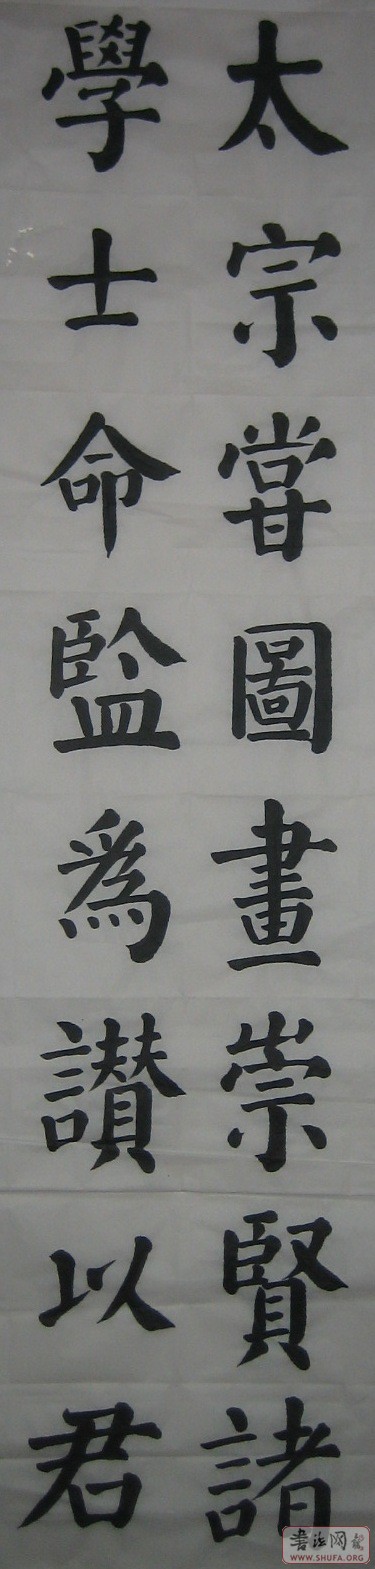 太宗甞圖畫崇賢諸
學士命監為讃以君
書法网
WWW.SHUFA.ORG